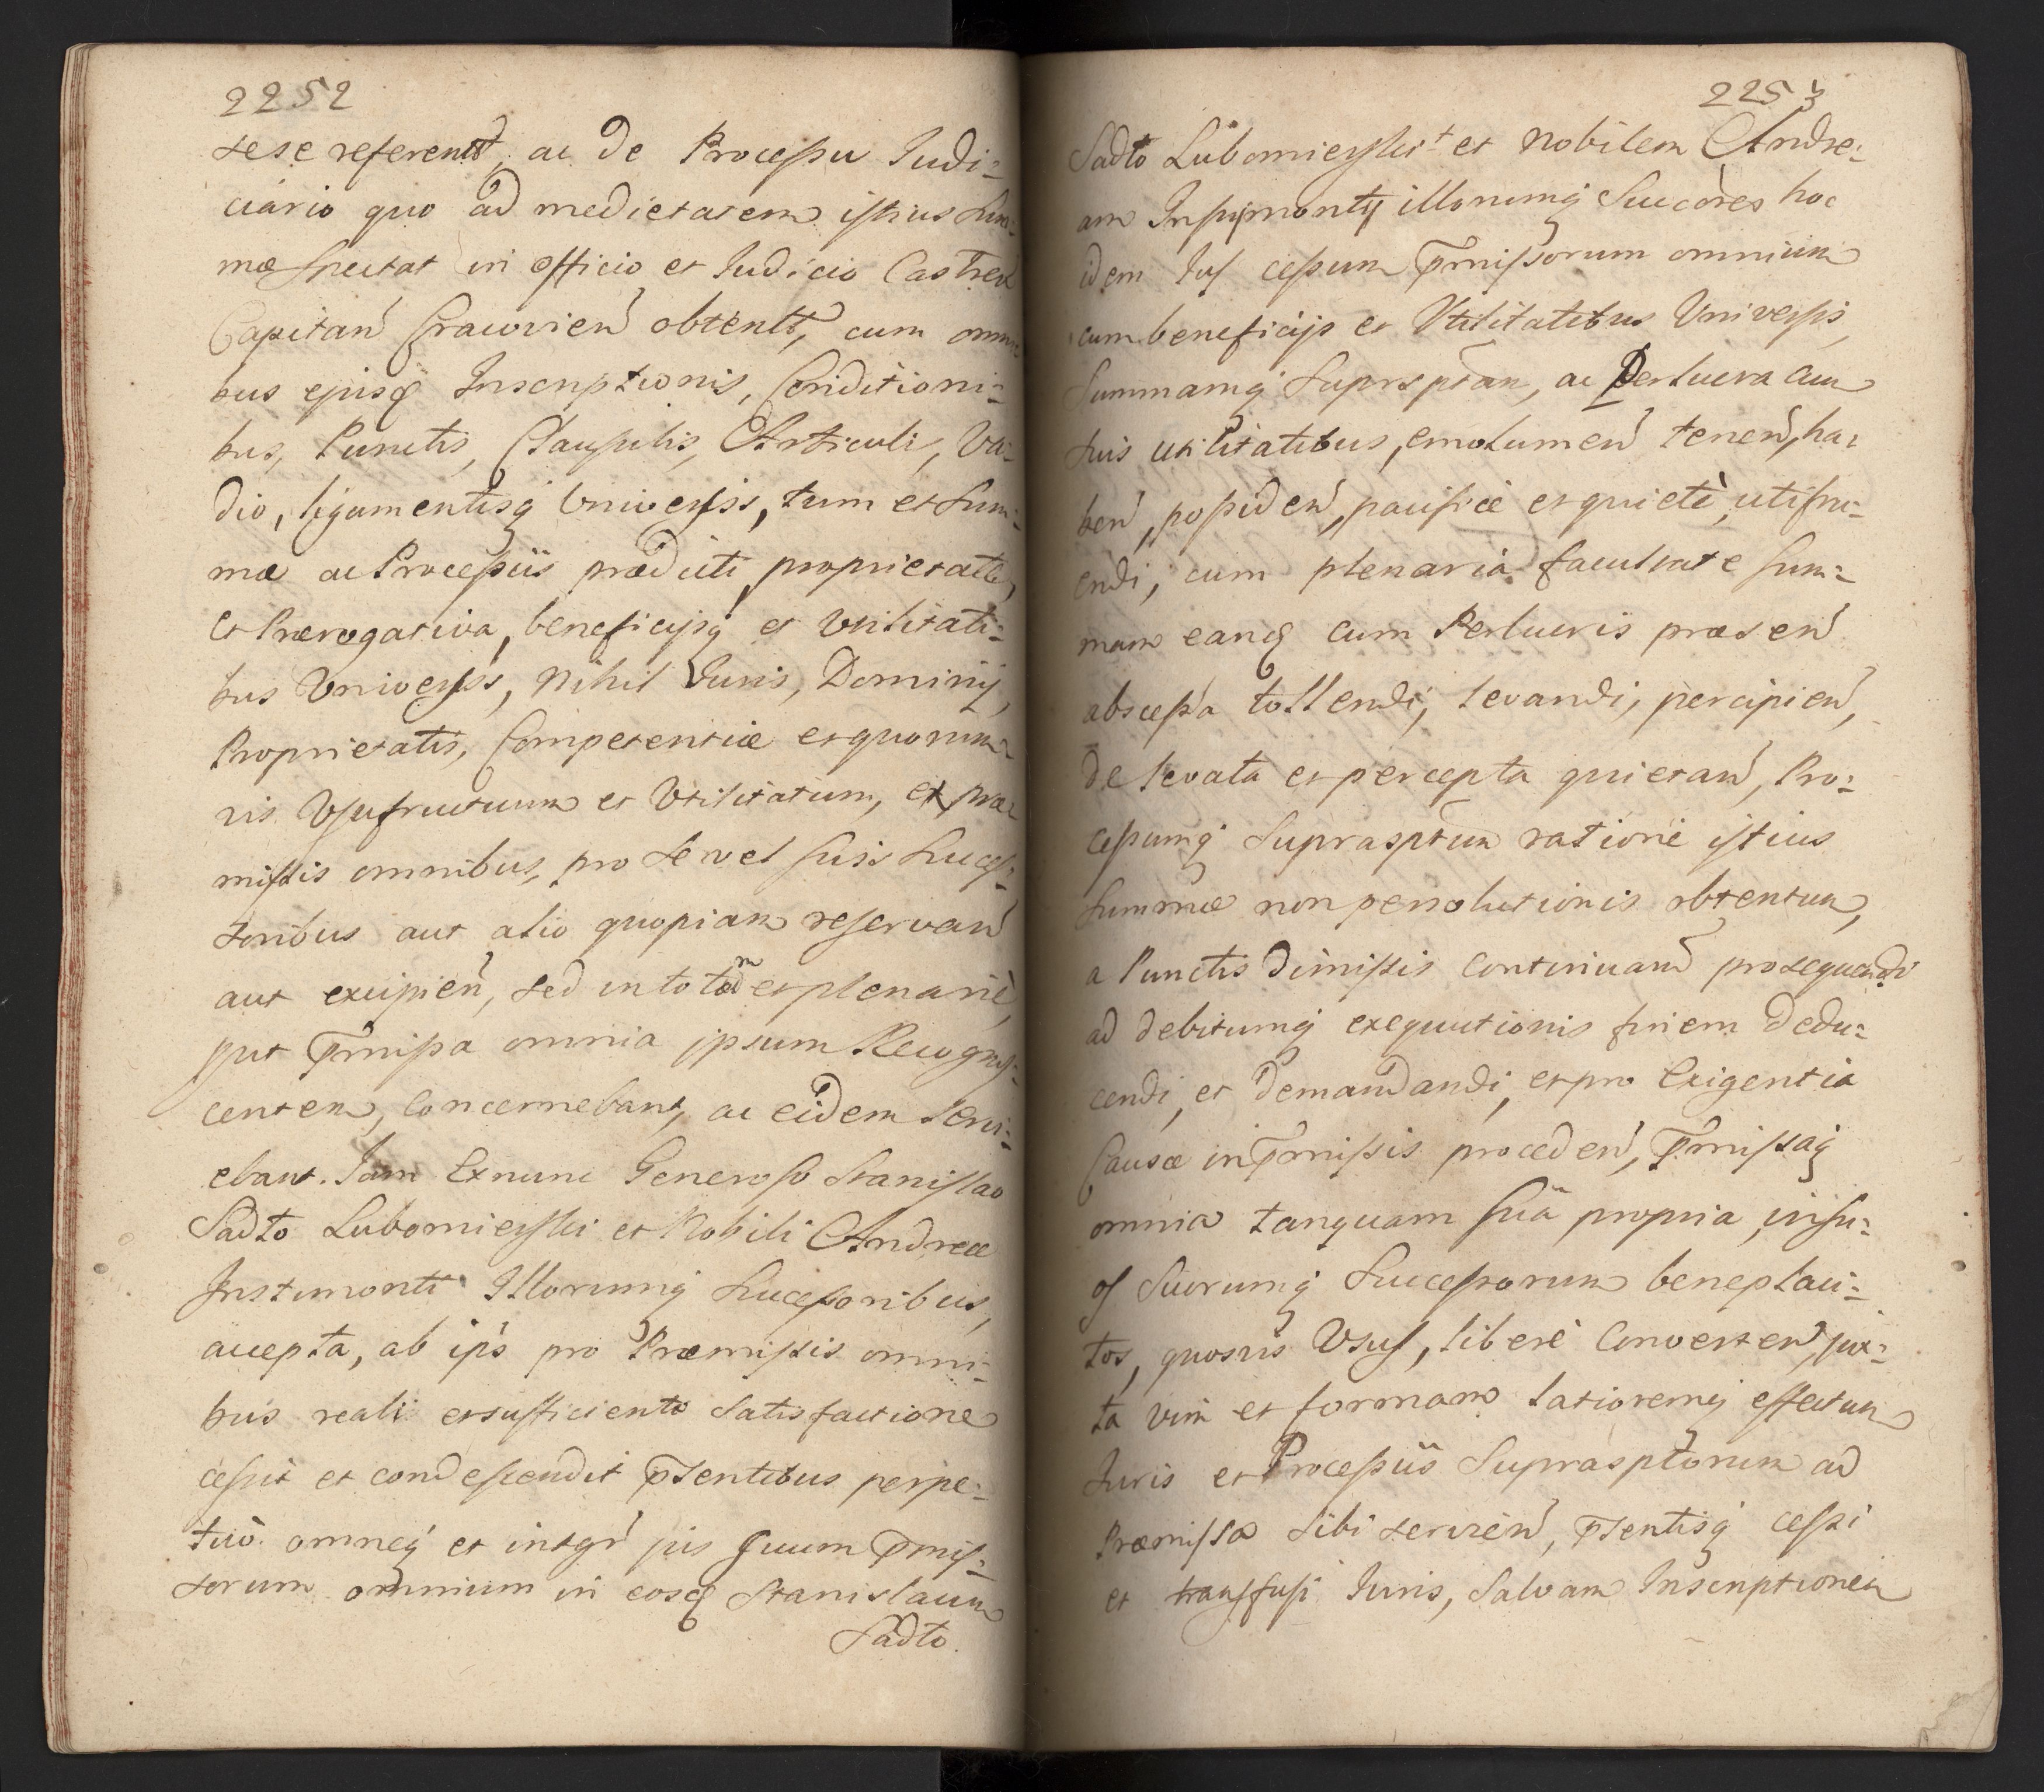 2252
sese referent, ac de Processu Judi=
ciario quo ad medietatem istius Sum=
mæ spectat in officio et Judicio Castren
Capitan Cracovien obtent, cum omni
bus ejusq Inscriptionis, Conditioni=
bus, Punctis, Clausulis, Articuli, Va=
dio, ligamentisq Universis, tum et Sum=
mæ ac Processûs prædicti proprietate,
et Prærogativa, beneficijsq et Utilitati=
bus Universis, Nihil Juris, Dominij,
Proprietatis, Competentiæ et quorum=
vis Usufructuum et Utilitatum, ex præ=
missis omnibus, pro se vel suis Succes=
soribus aut alio quopiam reservan
aut excipien, sed in totum et plenariè,
put p̄missa omnia ipsum Recognos=
centem, concernebant, ac eidem servi=
ebant. Jam Exnunc Generoso Stanislao
Sadto Lubomierski et Nobili Andreæ
Instimonti Illorumq Successoribus,
accepta, ab ip̄s pro Præmissis omni=
bus reali et sufficienti satisfactione
cessit et condescendit p̄sentibus perpe=
tuò omneq et integr̄ jus suum p̄mis=
sorum omnium in eosq Stanislaum
Sadto.
2253
Sadto Lubomierski + et Nobilem Andre=
am Insymonty illorumq Succ̄ores hoc
idem Jus cessum p̄missorum omnium
cum beneficijs et Utilitatibus Universis,
Summamq suprsptam, ac Perlucra cum
suis utilitatibus, emolumen tenen, ha=
ben, possiden, pacificè et quietè, utifru=
endi, cum plenaria facultate sum=
mam eanq cum Perlucris præsen
abscessa tollendi, levandi, percipien,
de levata et percepta quietan, Pro=
cessumq suprasptum ratione istius
summæ non persolutionis obtentum,
a Punctis dimissis continuan prosequendi
ad debitumq exequutionis finem dedu=
cendi, et demandandi, et pro Exigentia
Causæ in p̄missis proceden, p̄missaq
omnia tanquam sua propria, in su=
os suorumq Successorum beneplaci=
tos, quosvis Usus, liberè Converten, jux=
ta vim et formam latioremq effectum
Juris et Processûs Suprasptorum ad
Præmissa sibi servien, p̄sentisq cessi
et transfusi Juris, Salvam Inscriptionem